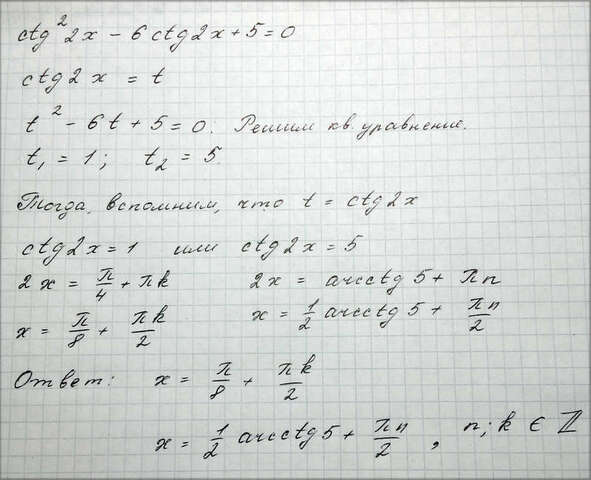 ctg²2x - 6ctg2x + 5 = 0
ctg2x = t
t² - 6t + 5 = 0. Решим кв. уравнение.
t₁ = 1; t₂ = 5.
Тогда, вспомним, что t = ctg2x
ctg2x = 1 или ctg2x = 5
2x = π/4 + πk 2x = arcctg5 + πn
x = π/8 + πk/2 x = 1/2 arcctg5 + πn/2
Ответ: x = π/8 + πk/2
x = 1/2 arcctg5 + πn/2, n; k ∈ ℤ